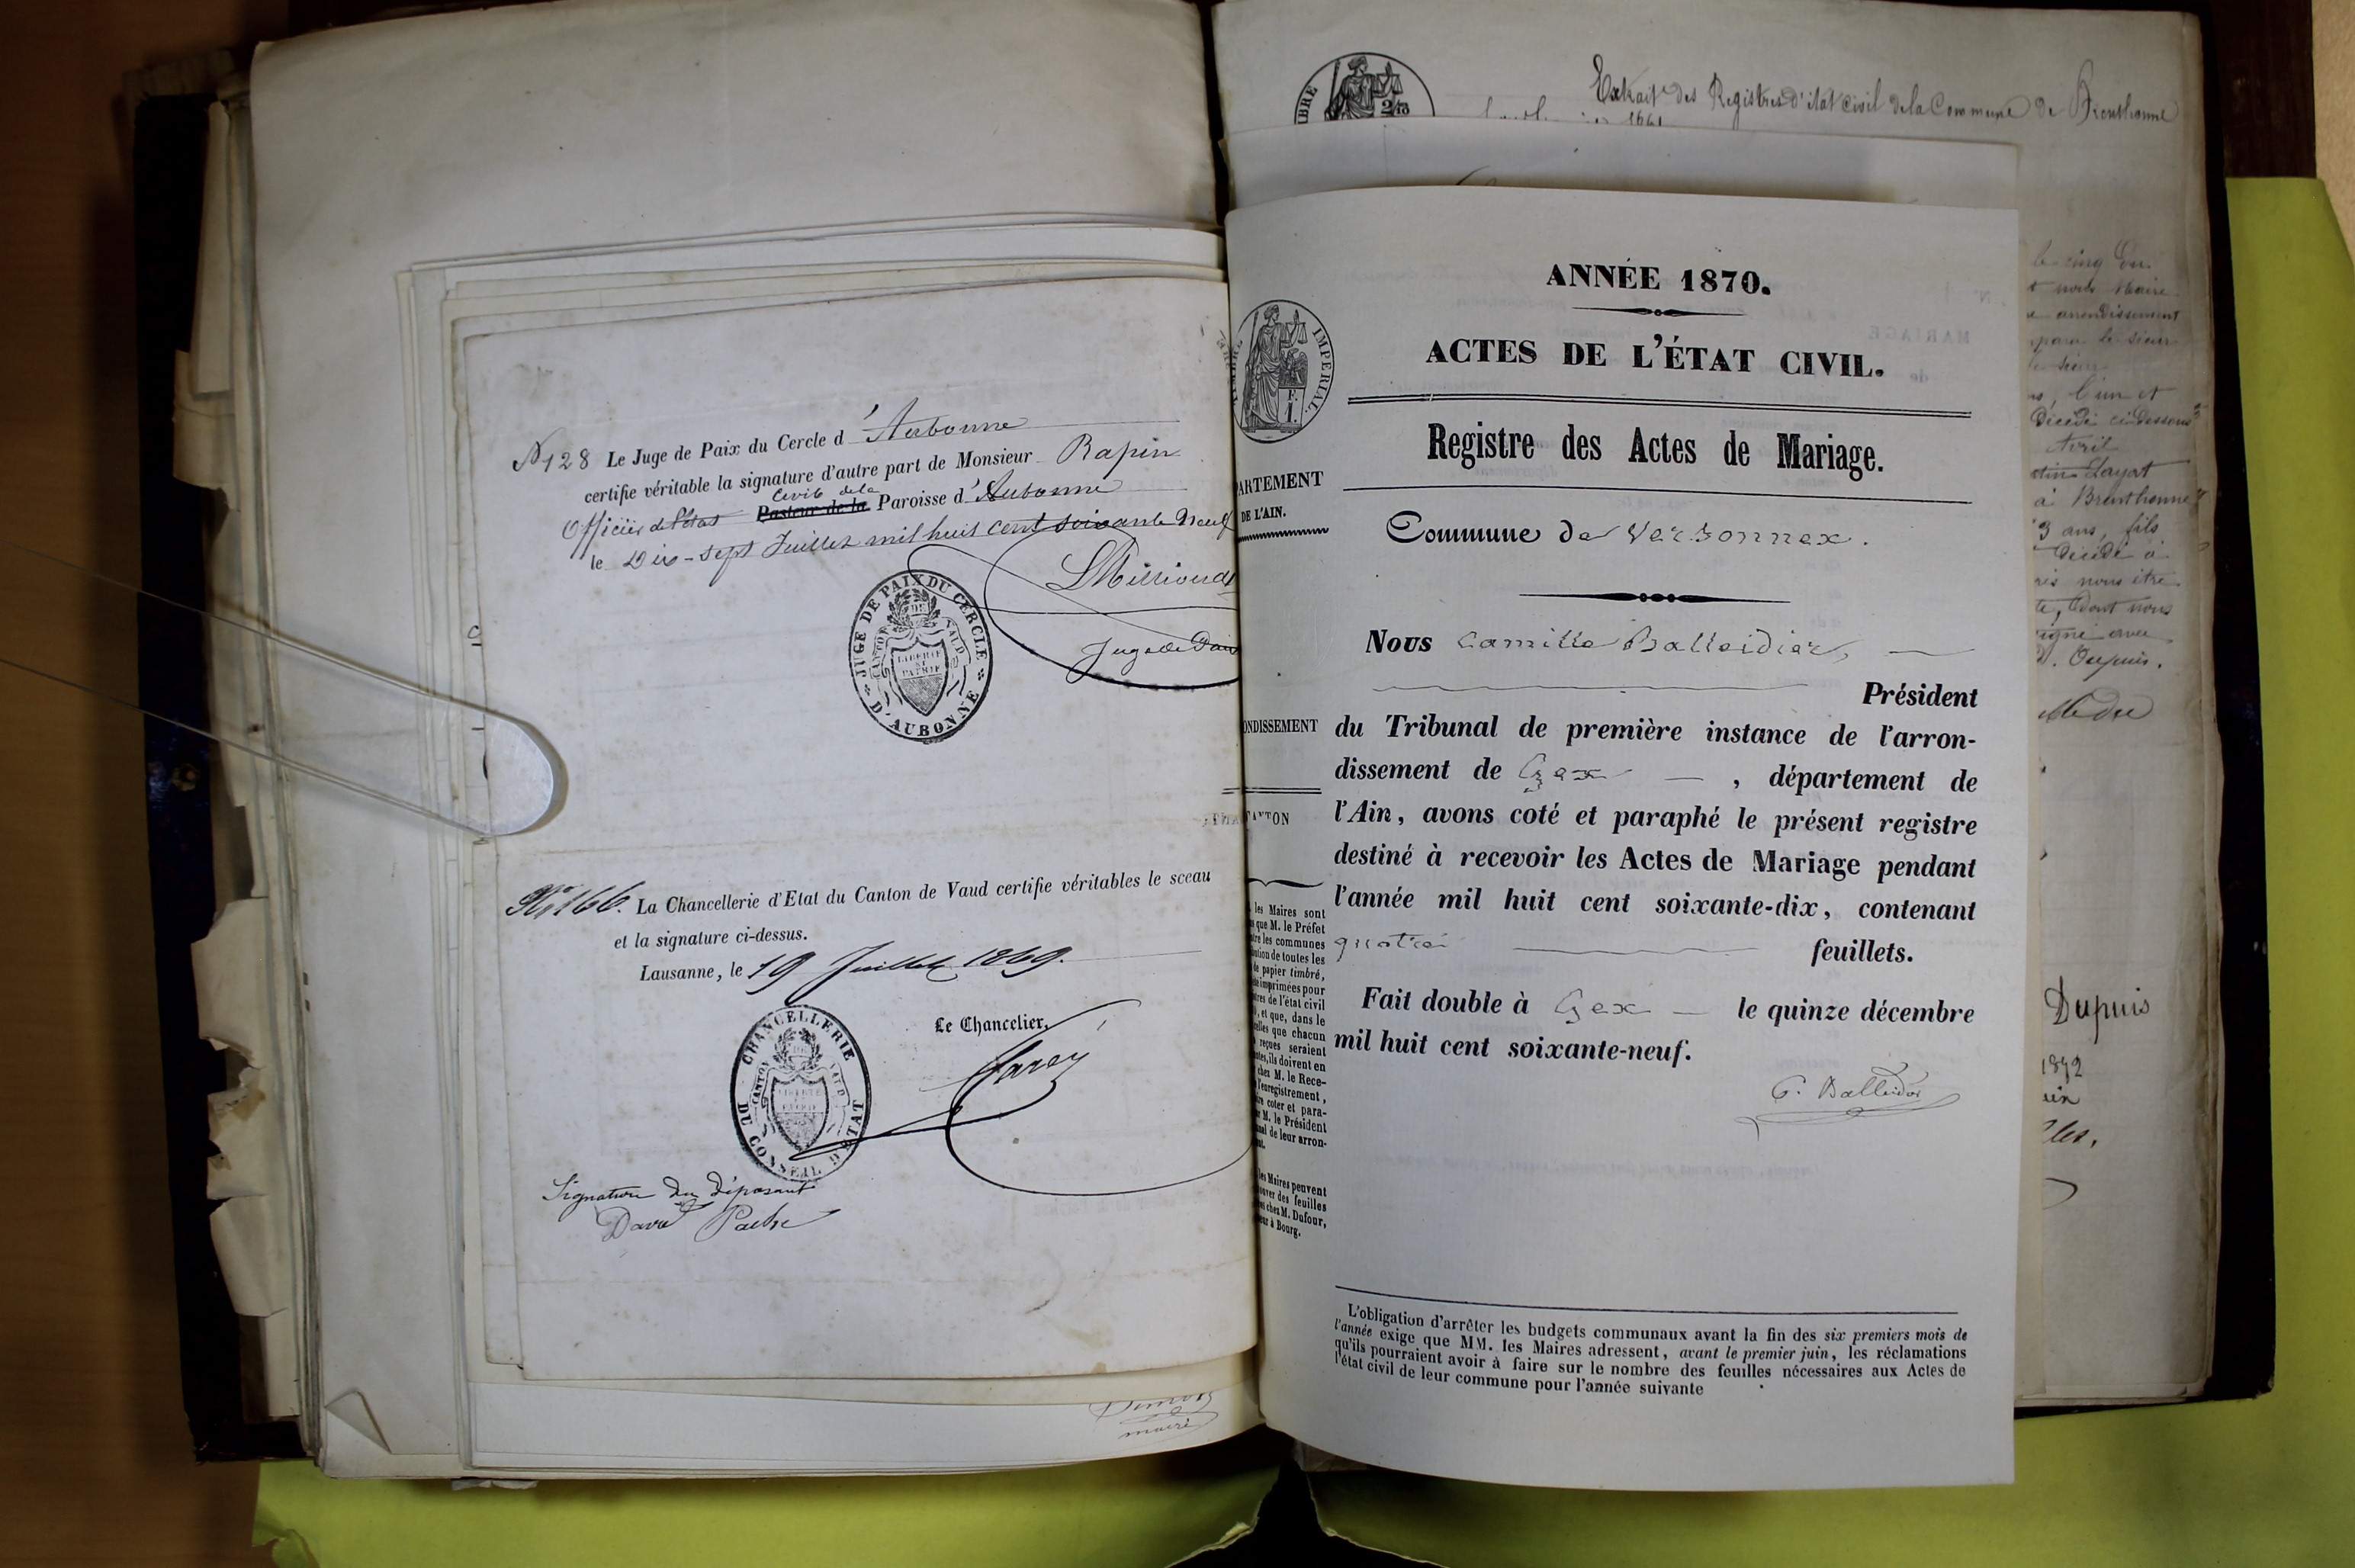 N° 128 Le Juge de Paix du Cercle d'Aubonne
certifie véritable la signature d'autre part de Monsieur Rapin
Officier d'Etat Civil de la Pasteur de la Paroisse d'Aubonne
le Dix-sept Juillet mil huit cent soixante neuf
Juge de Paix
JUGE DE PAIX DU CERCLE D'AUBONNE
CANTON DE VAUD
LIBERTÉ ET PATRIE
N° 166. La Chancellerie d'Etat du Canton de Vaud certifie véritables le sceau
et la signature ci-dessus.
Lausanne, le 19 Juillet 1869.
Le Chancelier,
Carey
CHANCELLERIE DU CONSEIL D'ETAT
CANTON DE VAUD
Signature du déposant
David Pache
maire
BRE
2/10
Extrait des Registres d'état civil de la Commune de Brenthonne
ANNÉE 1870.
ACTES DE L'ÉTAT CIVIL.
TIMBRE IMPÉRIAL.
F.
1.
Registre des Actes de Mariage.
PARTEMENT
DE L'AIN.
Commune de Versonnex.
Nous Camille Balleidier,
Président
ONDISSEMENT
du Tribunal de première instance de l'arron-
dissement de Gex, département de
CANTON
l'Ain, avons coté et paraphé le présent registre
destiné à recevoir les Actes de Mariage pendant
l'année mil huit cent soixante-dix, contenant
quatre feuillets.
Fait double à Gex le quinze décembre
mil huit cent soixante-neuf.
C. Balleidier
les Maires sont
que M. le Préfet
les communes
de toutes les
papier timbré,
imprimées pour
de l'état civil
, et que, dans le
que chacun
reçues seraient
, ils doivent en
chez M. le Rece-
l'enregistrement,
coter et para-
M. le Président
de leur arron-
les Maires peuvent
des feuilles
chez M. Dufour,
à Bourg.
L'obligation d'arrêter les budgets communaux avant la fin des six premiers mois de
l'année exige que MM. les Maires adressent, avant le premier juin, les réclamations
qu'ils pourraient avoir à faire sur le nombre des feuilles nécessaires aux Actes de
l'état civil de leur commune pour l'année suivante
le cinq du
nous Maire
arrondissement
le sieur
l'un et
décédé ci-dessous
Avril
à Brenthonne
3 ans, fils
décédé à
nous être
dont nous
signé avec
Dupuis.
Dupuis
1842